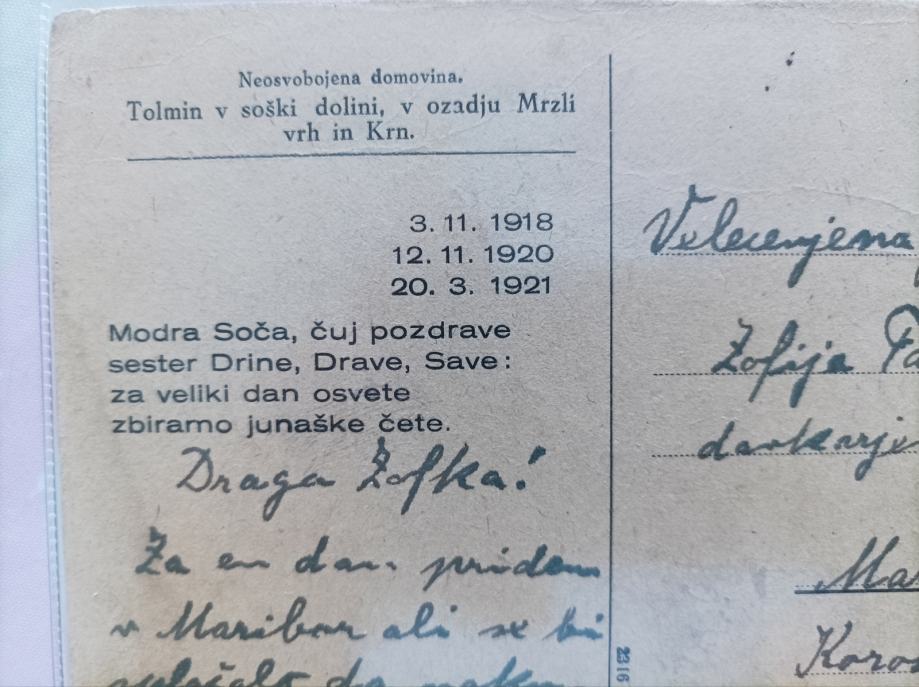 Neosvobojena domovina.
Tolmin v soški dolini, v ozadju Mrzli
vrh in Krn.
3. 11. 1918
12. 11. 1920
20. 3. 1921
Modra Soča, čuj pozdrave
sester Drine, Drave, Save:
za veliki dan osvete
zbiramo junaške čete.
Draga Zofka!
Za en dan pridem
v Maribor ali se bi
da
Velecenjena
Zofija
2316